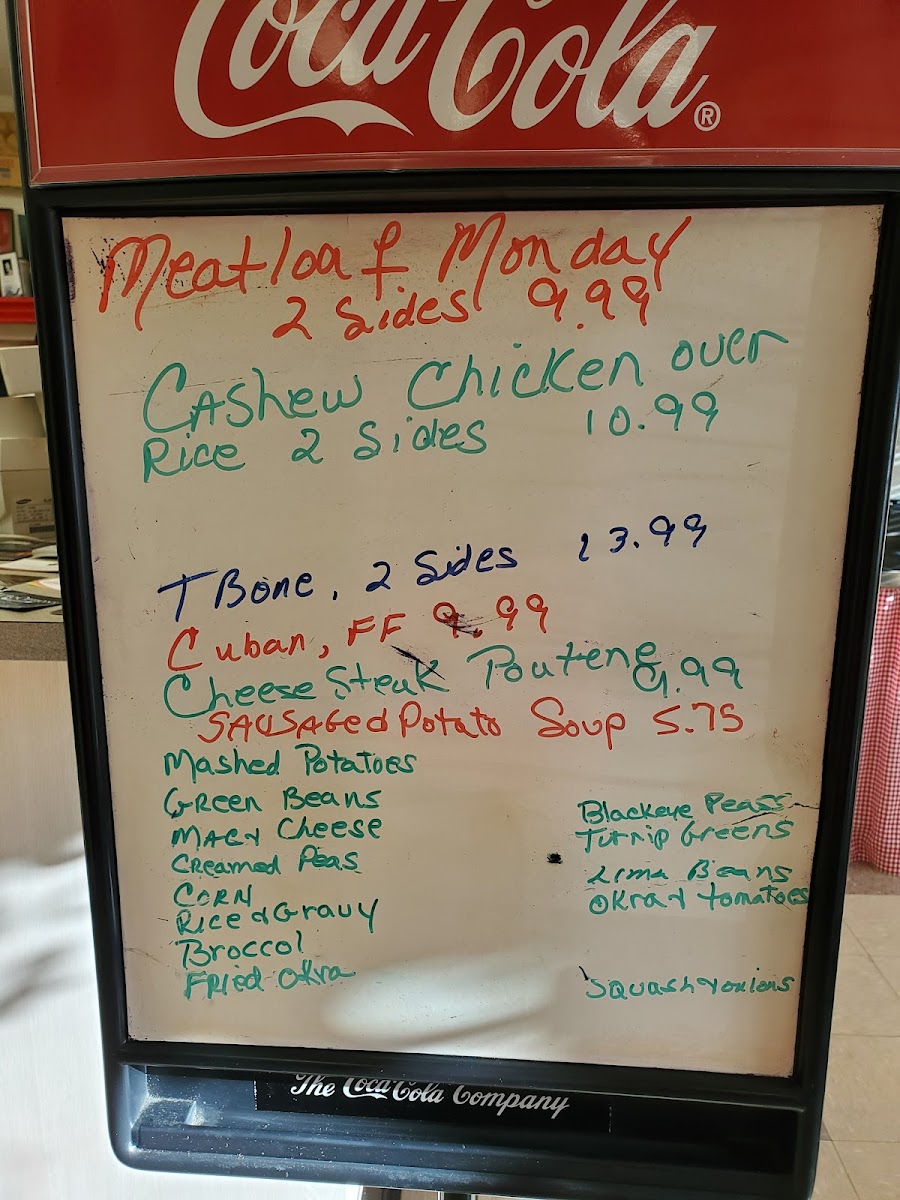 Coca-Cola®
Meatloaf Monday
2 Sides 9.99
Cashew Chicken over
Rice 2 Sides 10.99
T Bone, 2 Sides 13.99
Cuban, FF 9.99
Cheese Steak Poutene 9.99
SAUSAGE & Potato Soup 5.75
Mashed Potatoes
Green Beans
MAC & Cheese
Creamed Peas
CORN
Rice & Gravy
Broccol
Fried Okra
Blackeye Peass
Turnip Greens
Lima Beans
Okra & tomatoes
Squash & onions
The Coca-Cola Company